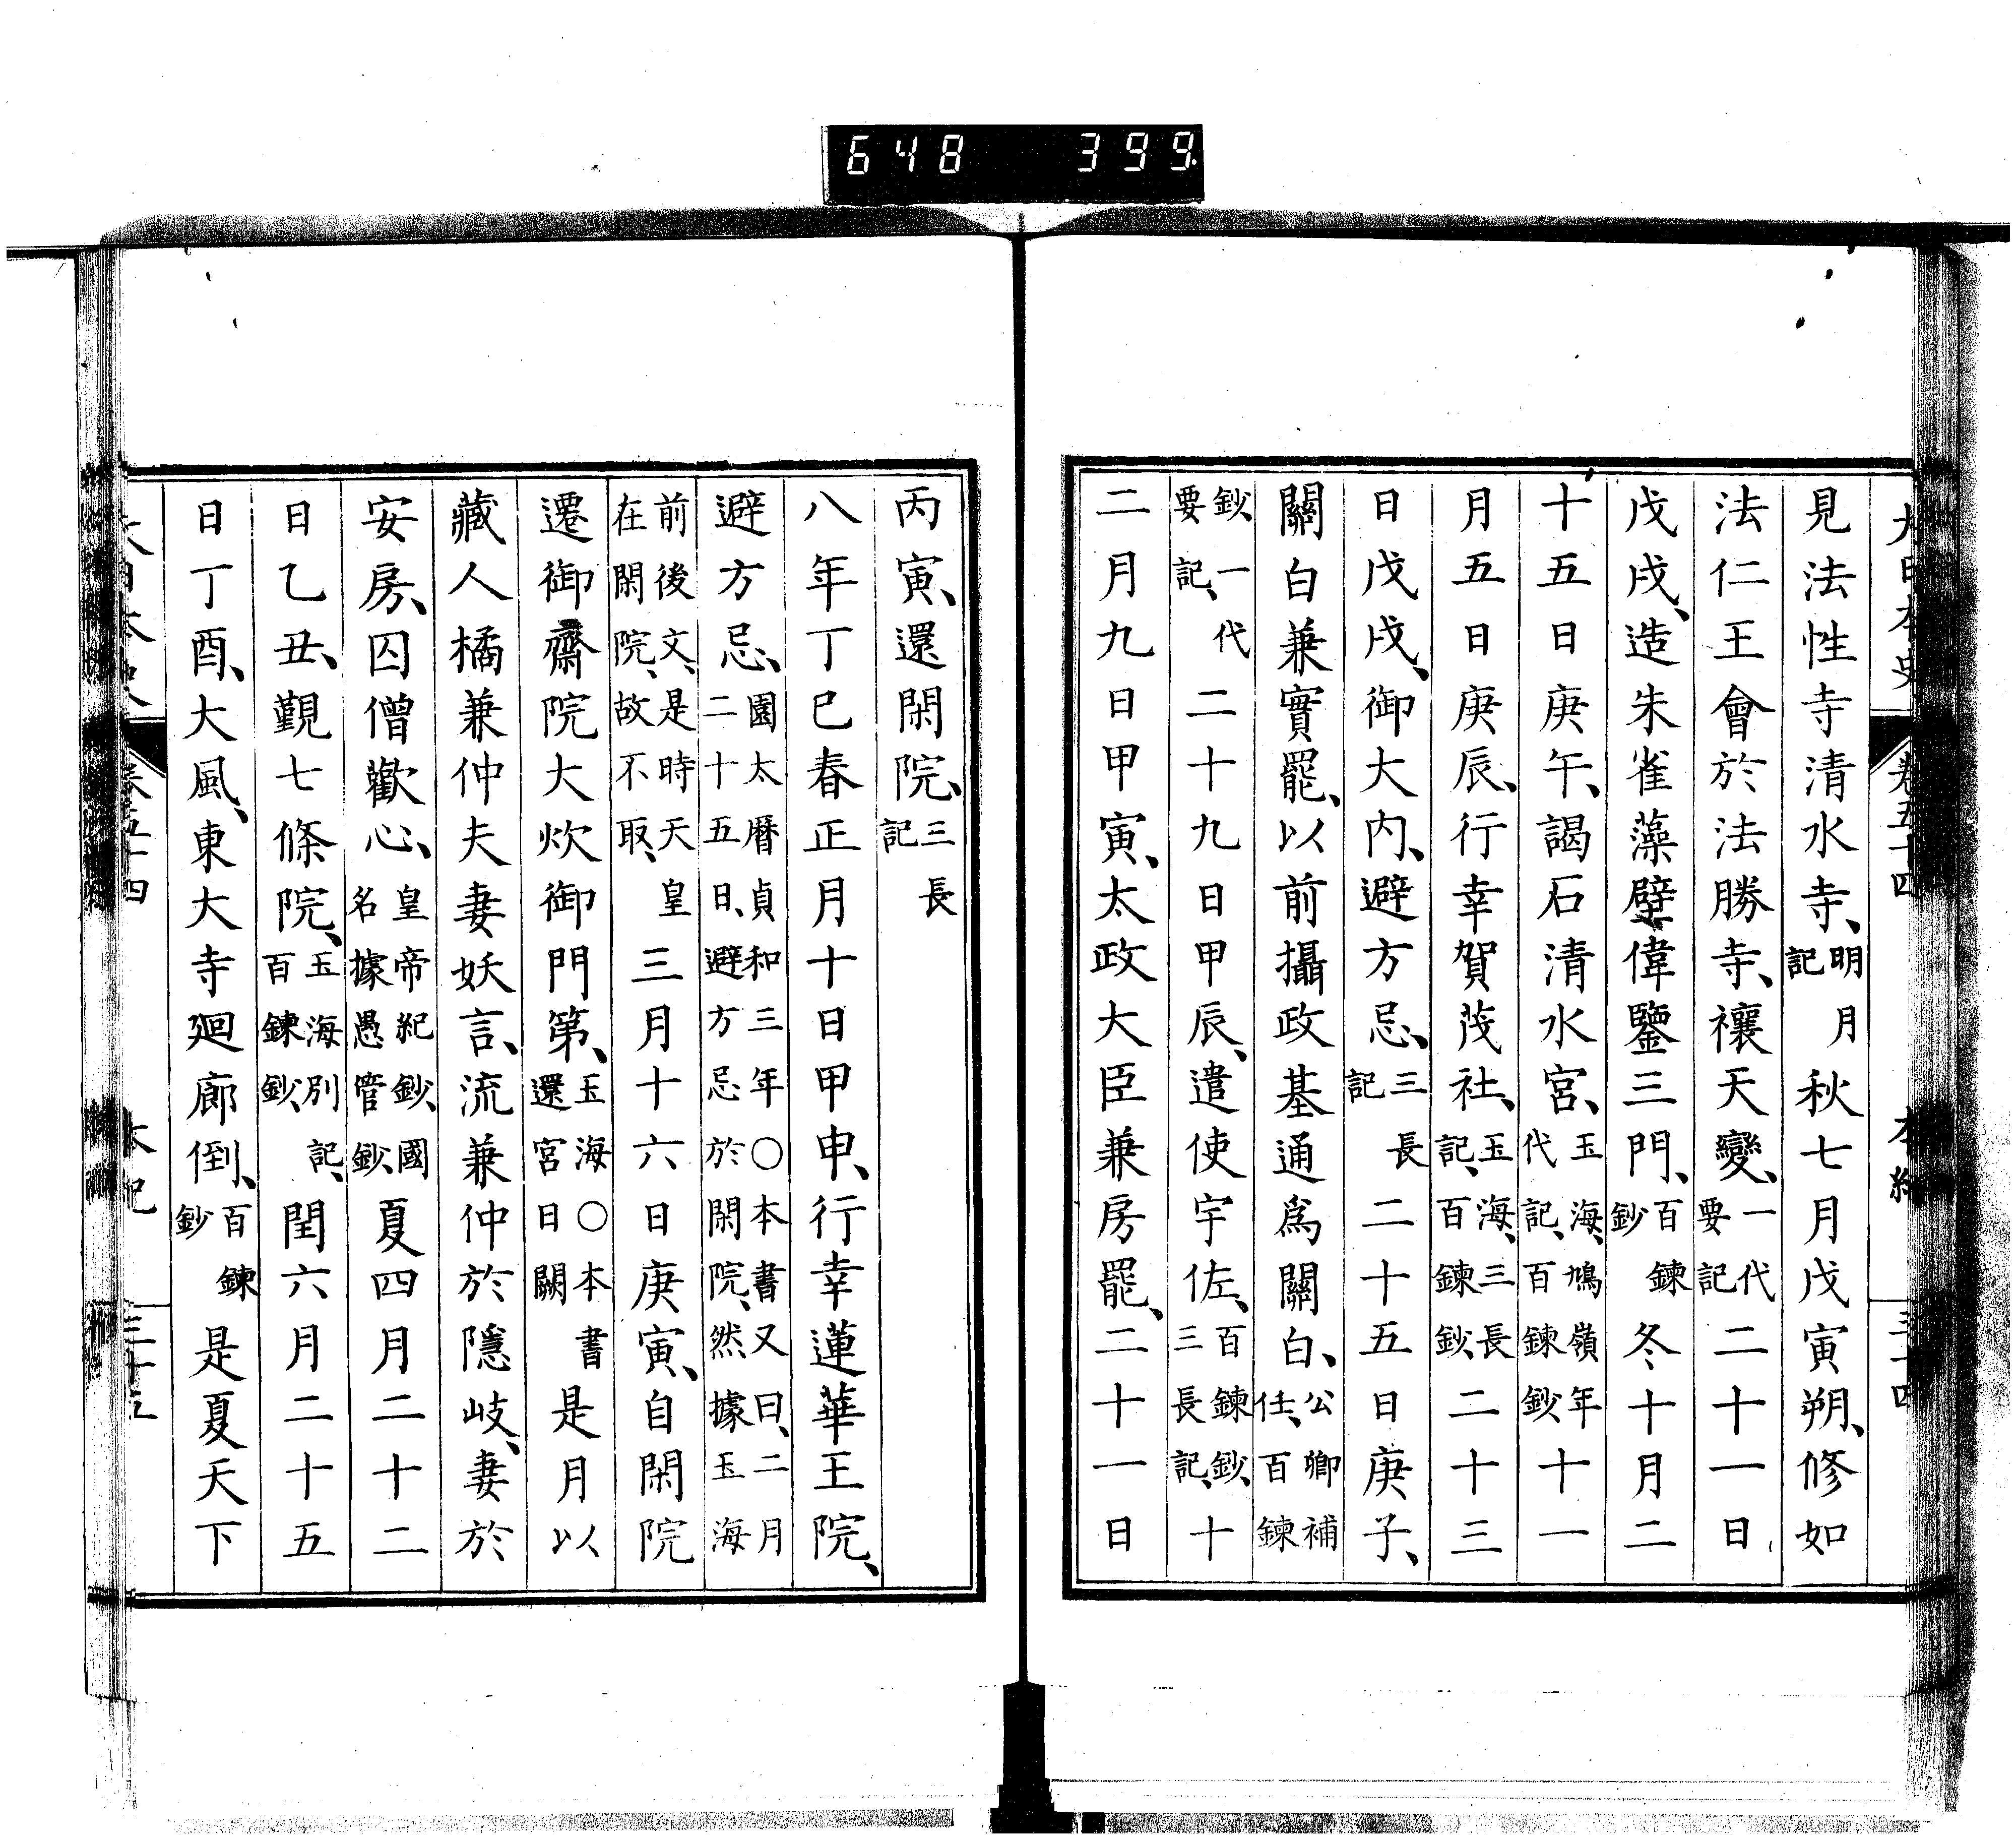 648 399
大日本史 卷五十四 本紀 三十四
見法性寺清水寺、明月記秋七月戊寅朔、修如
法仁王會於法勝寺、禳天變、一代要記二十一日
戊戌、造朱雀藻壁偉鑒三門、百鍊鈔冬十月二
十五日庚午、謁石清水宮、玉海、鳩嶺年代記、百鍊鈔十一
月五日庚辰、行幸賀茂社、玉海、三長記、百鍊鈔二十三
日戊戌、御大内、避方忌、三長記二十五日庚子、
關白兼實罷、以前攝政基通爲關白、公卿補任、百鍊
鈔、一代要記、二十九日甲辰、遣使宇佐、百鍊鈔、三長記、十
二月九日甲寅、太政大臣兼房罷、二十一日
丙寅、還閑院、三長記
八年丁巳春正月十日甲申、行幸蓮華王院、
避方忌、園太曆貞和三年〇本書又曰、二月二十五日、避方忌於閑院、然據玉海
前後文、是時天皇在閑院、故不取、三月十六日庚寅、自閑院
遷御齋院大炊御門第、玉海〇本書還宮日闕是月以
藏人橘兼仲夫妻妖言、流兼仲於隱岐、妻於
安房、囚僧歡心、皇帝紀鈔、國名據愚管鈔、夏四月二十二
日乙丑、覲七條院、玉海別記、百鍊鈔、閏六月二十五
日丁酉、大風、東大寺廻廊倒、百鍊鈔是夏天下
大日本史 卷五十四 本紀 三十五